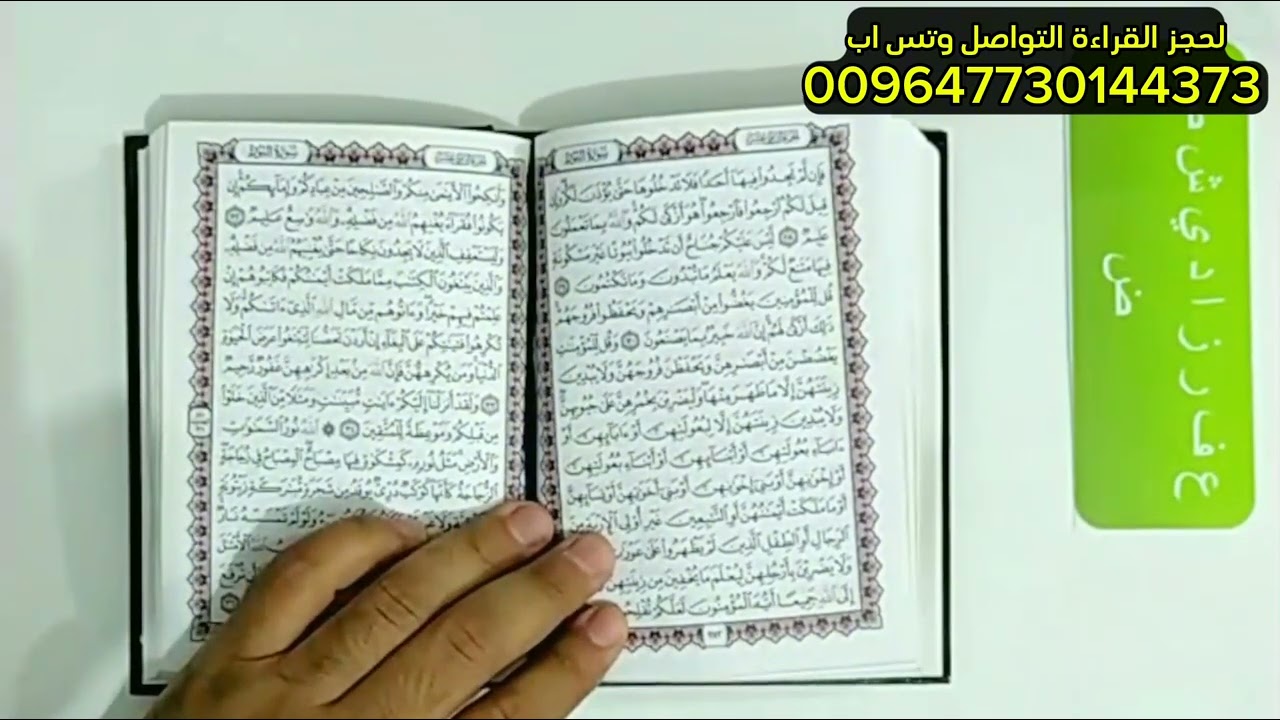 لحجز القراءة التواصل وتس اب
009647730144373
سورة النور
فَإِن لَّمْ تَجِدُوا۟ فِيهَآ أَحَدًا فَلَا تَدْخُلُوهَا حَتَّىٰ يُؤْذَنَ لَكُمْ وَإِن
قِيلَ لَكُمُ ٱرْجِعُوا۟ فَٱرْجِعُوا۟ هُوَ أَزْكَىٰ لَكُمْ وَٱللَّهُ بِمَا تَعْمَلُونَ
عَلِيمٌ ٢٨ لَّيْسَ عَلَيْكُمْ جُنَاحٌ أَن تَدْخُلُوا۟ بُيُوتًا غَيْرَ مَسْكُونَةٍ
فِيهَا مَتَٰعٌ لَّكُمْ وَٱللَّهُ يَعْلَمُ مَا تُبْدُونَ وَمَا تَكْتُمُونَ ٢٩
قُل لِّلْمُؤْمِنِينَ يَغُضُّوا۟ مِنْ أَبْصَٰرِهِمْ وَيَحْفَظُوا۟ فُرُوجَهُمْ
ذَٰلِكَ أَزْكَىٰ لَهُمْ إِنَّ ٱللَّهَ خَبِيرٌۢ بِمَا يَصْنَعُونَ ٣٠ وَقُل لِّلْمُؤْمِنَٰتِ
يَغْضُضْنَ مِنْ أَبْصَٰرِهِنَّ وَيَحْفَظْنَ فُرُوجَهُنَّ وَلَا يُبْدِينَ
زِينَتَهُنَّ إِلَّا مَا ظَهَرَ مِنْهَا وَلْيَضْرِبْنَ بِخُمُرِهِنَّ عَلَىٰ جُيُوبِهِنَّ
وَلَا يُبْدِينَ زِينَتَهُنَّ إِلَّا لِبُعُولَتِهِنَّ أَوْ ءَابَآئِهِنَّ أَوْ
ءَابَآءِ بُعُولَتِهِنَّ أَوْ أَبْنَآئِهِنَّ أَوْ أَبْنَآءِ بُعُولَتِهِنَّ
أَوْ إِخْوَٰنِهِنَّ أَوْ بَنِىٓ إِخْوَٰنِهِنَّ أَوْ بَنِىٓ أَخَوَٰتِهِنَّ أَوْ نِسَآئِهِنَّ
أَوْ مَا مَلَكَتْ أَيْمَٰنُهُنَّ أَوِ ٱلتَّٰبِعِينَ غَيْرِ أُو۟لِى ٱلْإِرْبَةِ مِنَ
ٱلرِّجَالِ أَوِ ٱلطِّفْلِ ٱلَّذِينَ لَمْ يَظْهَرُوا۟ عَلَىٰ عَوْرَٰتِ
وَلَا يَضْرِبْنَ بِأَرْجُلِهِنَّ لِيُعْلَمَ مَا يُخْفِينَ مِن زِينَتِهِنَّ
إِلَى ٱللَّهِ جَمِيعًا أَيُّهَ ٱلْمُؤْمِنُونَ لَعَلَّكُمْ تُفْلِحُونَ
٣٥٣
سورة النور
وَأَنكِحُوا۟ ٱلْأَيَٰمَىٰ مِنكُمْ وَٱلصَّٰلِحِينَ مِنْ عِبَادِكُمْ وَإِمَآئِكُمْ إِن
يَكُونُوا۟ فُقَرَآءَ يُغْنِهِمُ ٱللَّهُ مِن فَضْلِهِۦ وَٱللَّهُ وَٰسِعٌ عَلِيمٌ ٣٢
وَلْيَسْتَعْفِفِ ٱلَّذِينَ لَا يَجِدُونَ نِكَاحًا حَتَّىٰ يُغْنِيَهُمُ ٱللَّهُ مِن فَضْلِهِۦ
وَٱلَّذِينَ يَبْتَغُونَ ٱلْكِتَٰبَ مِمَّا مَلَكَتْ أَيْمَٰنُكُمْ فَكَاتِبُوهُمْ إِنْ
عَلِمْتُمْ فِيهِمْ خَيْرًا وَءَاتُوهُم مِّن مَّالِ ٱللَّهِ ٱلَّذِىٓ ءَاتَىٰكُمْ وَلَا
تُكْرِهُوا۟ فَتَيَٰتِكُمْ عَلَى ٱلْبِغَآءِ إِنْ أَرَدْنَ تَحَصُّنًا لِّتَبْتَغُوا۟ عَرَضَ ٱلْحَيَوٰةِ
ٱلدُّنْيَا وَمَن يُكْرِههُّنَّ فَإِنَّ ٱللَّهَ مِنۢ بَعْدِ إِكْرَٰهِهِنَّ غَفُورٌ رَّحِيمٌ
٣٣ وَلَقَدْ أَنزَلْنَآ إِلَيْكُمْ ءَايَٰتٍ مُّبَيِّنَٰتٍ وَمَثَلًا مِّنَ ٱلَّذِينَ خَلَوْا۟
مِن قَبْلِكُمْ وَمَوْعِظَةً لِّلْمُتَّقِينَ ٣٤ ۞ ٱللَّهُ نُورُ ٱلسَّمَٰوَٰتِ
وَٱلْأَرْضِ مَثَلُ نُورِهِۦ كَمِشْكَوٰةٍ فِيهَا مِصْبَاحٌ ٱلْمِصْبَاحُ فِى زُجَاجَةٍ
ٱلزُّجَاجَةُ كَأَنَّهَا كَوْكَبٌ دُرِّىٌّ يُوقَدُ مِن شَجَرَةٍ مُّبَٰرَكَةٍ زَيْتُونَةٍ
وَلَوْ لَمْ تَمْسَسْهُ نَارٌ
ٱلْأَمْثَٰلَ
تُرْفَعَ
ع ف ر ز ا د ي ش
ض